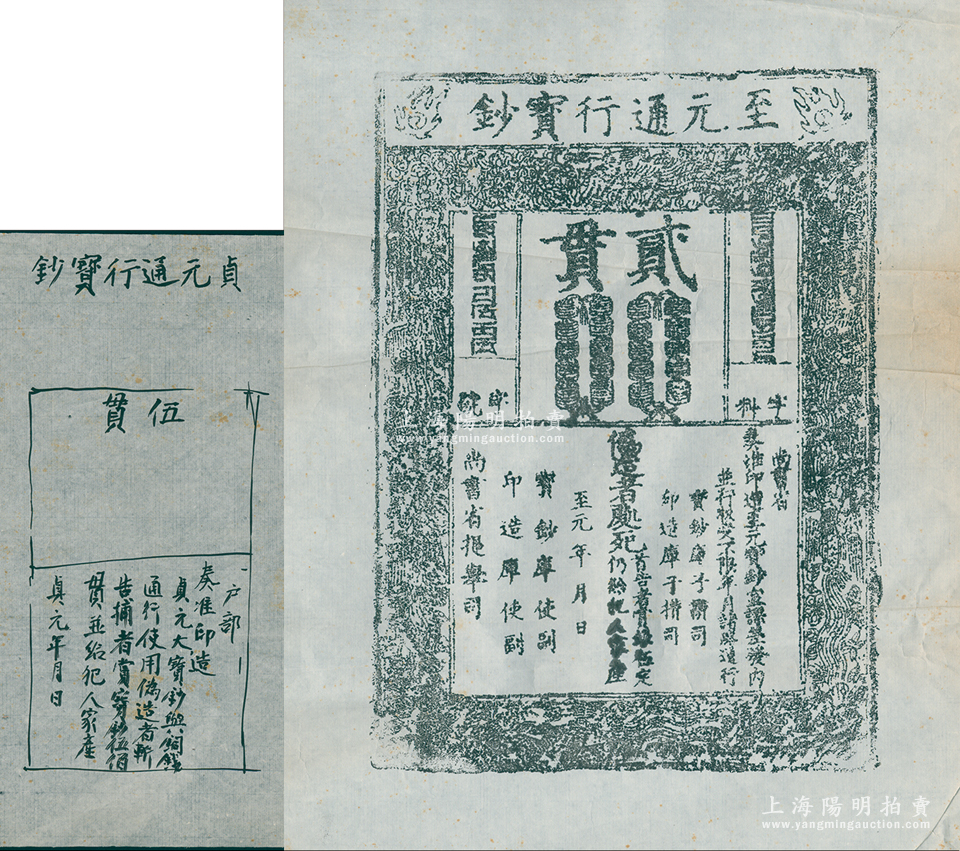 貞元通行寶鈔
伍貫
户部
奏准印造
貞元大寶鈔與銅錢
通行使用偽造者斬
告捕者賞寶鈔伍佰
貫並給犯人家產
貞元年月日
至元通行寶鈔
貳貫
字料
字號
尚書省
奏准印造至元寶鈔
並行收受不限年月諸路通行
寶鈔庫子攢司
印造庫子攢司
偽造者處死首告者賞
仍給犯人家產
至元年月日
寶鈔庫使副
印造庫使副
尚書省提舉司
上海陽明拍賣
www.yangmingauction.com
上海陽明拍賣
www.yangmingauction.com